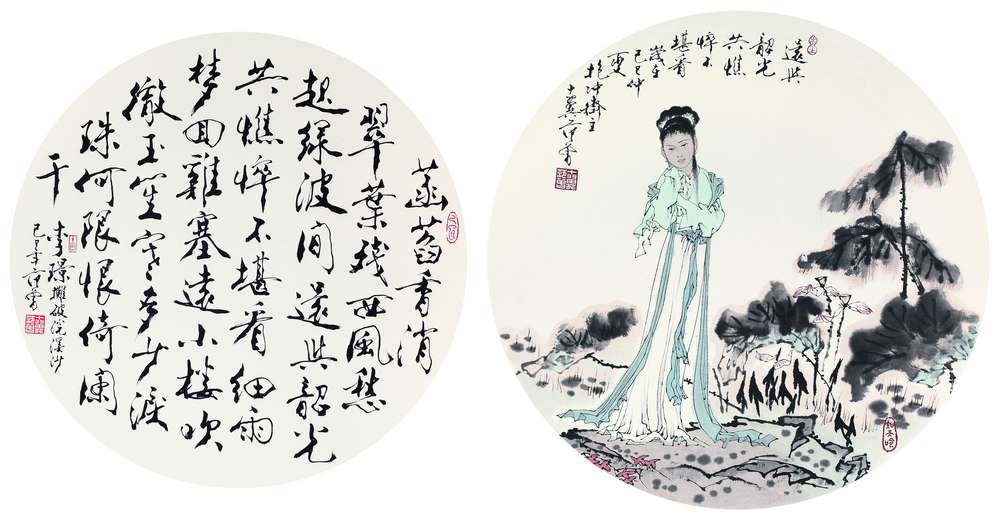 菡萏香消
翠葉殘西風愁
起綠波间還與韶光
共憔悴不堪看细雨
梦回雞塞遠小樓吹
徹玉笙寒多少淚
珠何限恨倚闌
干
李璟攤破浣溪沙
己巳年范曾
還與
韶光
共憔
悴不
堪看
歲在
己巳仲
夏
抱冲齋主
十翼范曾